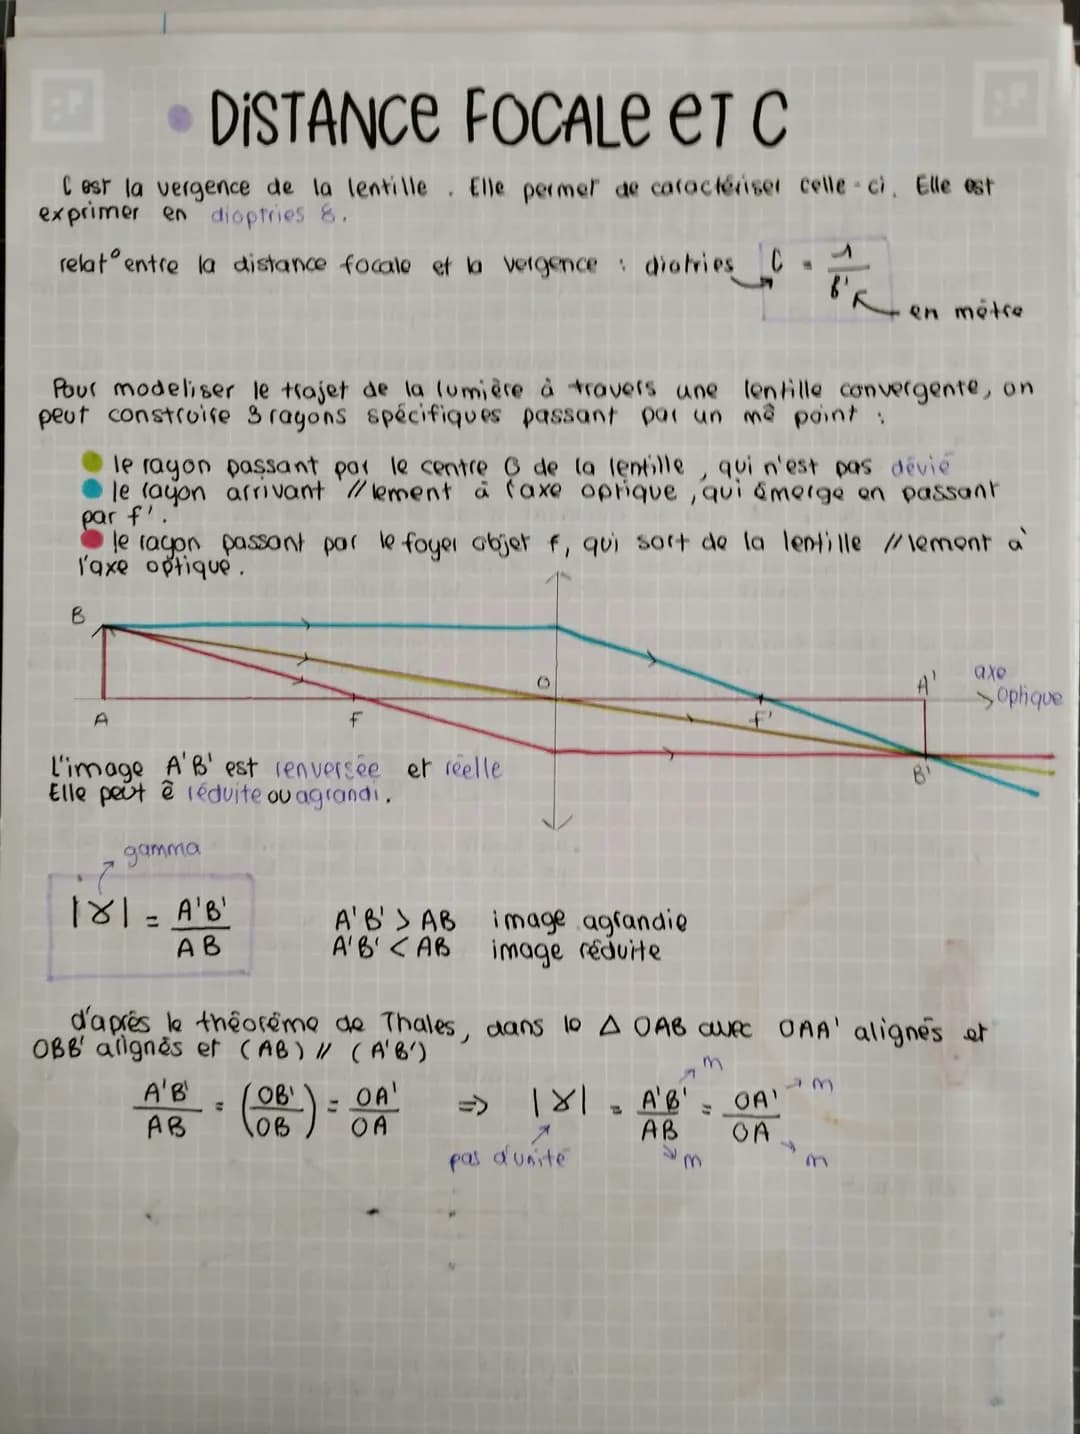 DISTANCE FOCALE ET C
C est la vergence de la lentille . Elle permet de caractériser celle-ci. Elle est
exprimer en dioptries δ.
relat° entre la distance focale et la vergence : diotries C = 1/f' en mètre
Pour modeliser le trajet de la lumière à travers une lentille convergente, on
peut construire 3 rayons spécifiques passant par un mê point :
le rayon passant par le centre O de la lentille, qui n'est pas dévié
le rayon arrivant //lement à l'axe optique, qui émerge en passant
par f'.
le rayon passant par le foyer objet f, qui sort de la lentille //lement à
l'axe optique.
B
O
A'
axe
optique
A
F
F'
B'
L'image A'B' est renversée et réelle
Elle peut ê réduite ou agrandi.
gamma
|γ| = A'B'/AB
A'B' > AB image agrandie
A'B' < AB image réduite
d'après le théorème de Thales, dans le Δ OAB avec OAA' alignés et
OBB' alignés et (AB) // (A'B')
A'B'/AB = (OB'/OB) = OA'/OA => |γ| = A'B'/AB = OA'/OA
m
m
pas d'unité
m
m